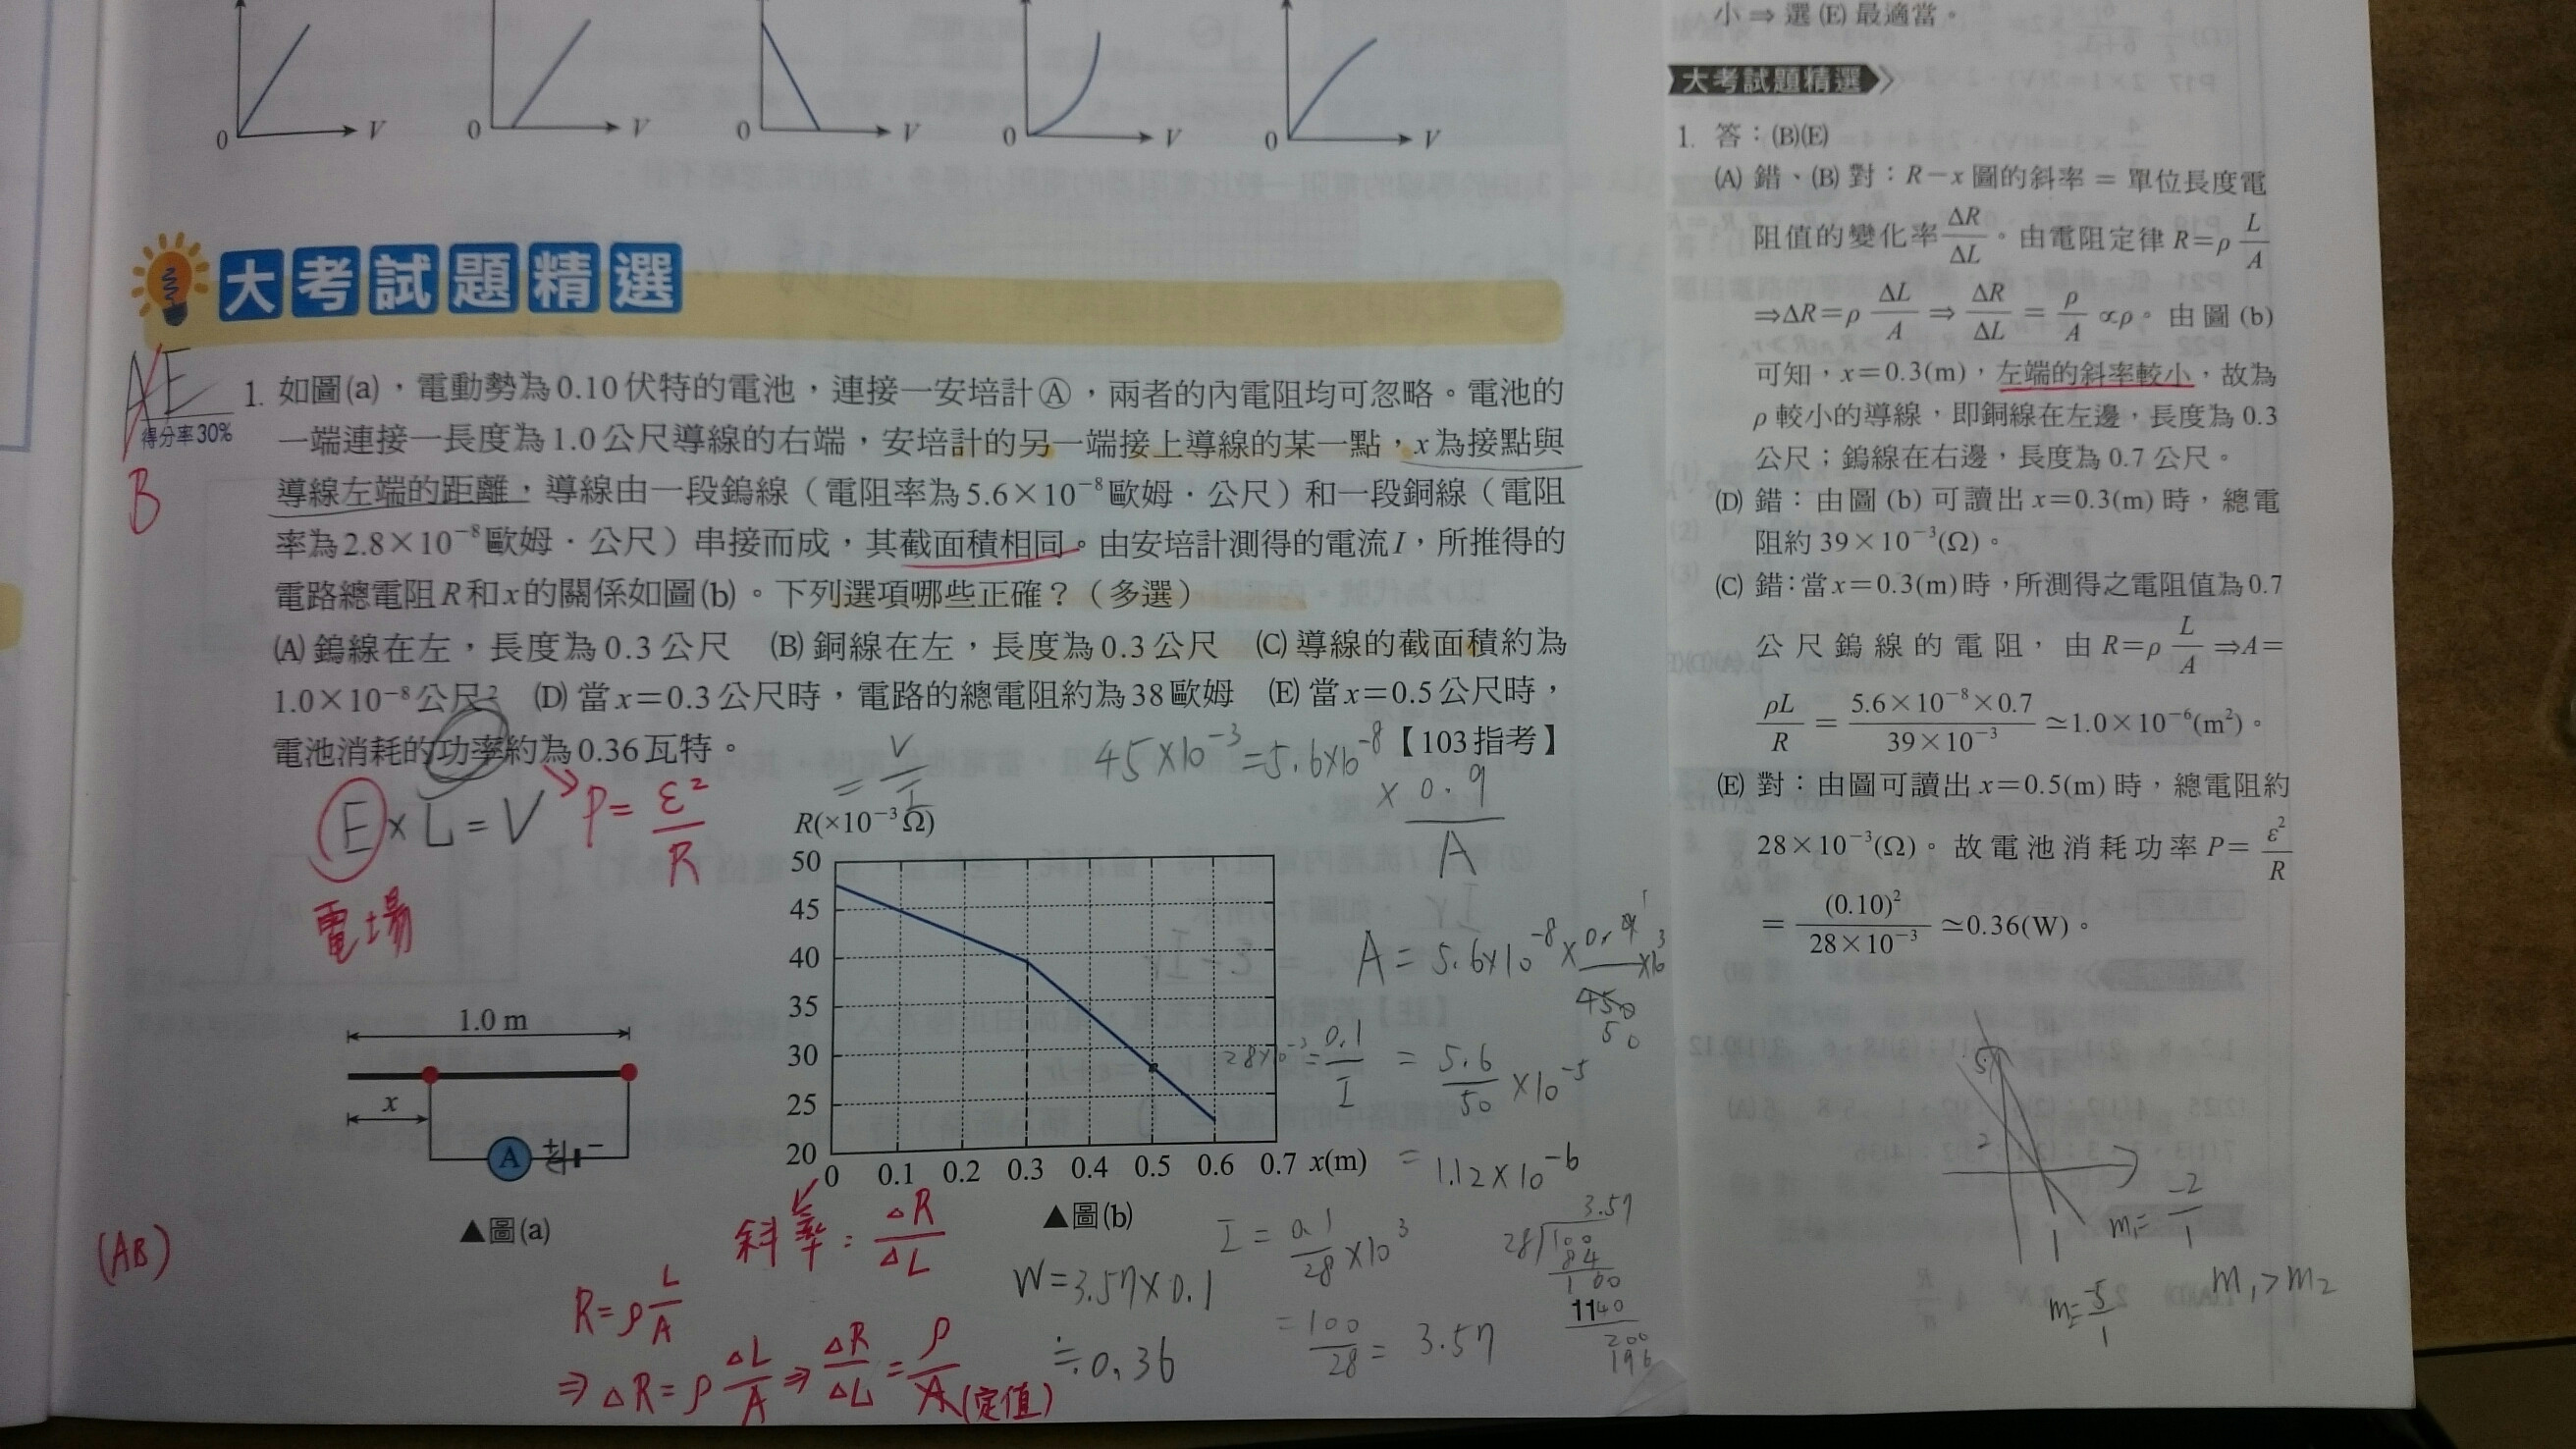 0 V 0 V 0 V 0 V 0 V
大考試題精選
AE
得分率30%
B
1. 如圖(a)，電動勢為0.10伏特的電池，連接一安培計Ⓐ，兩者的內電阻均可忽略。電池的
一端連接一長度為1.0公尺導線的右端，安培計的另一端接上導線的某一點，x為接點與
導線左端的距離，導線由一段鎢線（電阻率為5.6×10⁻⁸歐姆．公尺）和一段銅線（電阻
率為2.8×10⁻⁸歐姆．公尺）串接而成，其截面積相同。由安培計測得的電流I，所推得的
電路總電阻R和x的關係如圖(b)。下列選項哪些正確？（多選）
(A)鎢線在左，長度為0.3公尺　(B)銅線在左，長度為0.3公尺　(C)導線的截面積約為
1.0×10⁻⁸公尺²　(D)當x＝0.3公尺時，電路的總電阻約為38歐姆　(E)當x＝0.5公尺時，
電池消耗的功率約為0.36瓦特。
【103指考】
E×L=V
P=ε²/R
電場
=V/I
45×10⁻³=5.6×10⁻⁸×0.9/A
R(×10⁻³Ω)
50
45
40
35
30
25
20
0 0.1 0.2 0.3 0.4 0.5 0.6 0.7 x(m)
▲圖(b)
1.0 m
x
A
+ -
▲圖(a)
(AB)
斜率：ΔR/ΔL
R=ρL/A
⇒ΔR=ρΔL/A⇒ΔR/ΔL=ρ/A(定值)
28×10⁻³=0.1/I
=5.6/50×10⁻⁵
=1.12×10⁻⁶
I=0.1/28×10³
=100/28=3.57
W=3.57×0.1
≒0.36
3.57
28 100
84
160
1140
200
196
小⇒選(E)最適當。
大考試題精選
1. 答：(B)(E)
(A) 錯、(B) 對：R－x圖的斜率＝單位長度電
阻值的變化率ΔR/ΔL。由電阻定律R＝ρL/A
⇒ΔR＝ρΔL/A⇒ΔR/ΔL＝ρ/A∝ρ。由圖(b)
可知，x＝0.3(m)，左端的斜率較小，故為
ρ較小的導線，即銅線在左邊，長度為0.3
公尺；鎢線在右邊，長度為0.7公尺。
(D) 錯：由圖(b)可讀出x＝0.3(m)時，總電
阻約39×10⁻³(Ω)。
(C) 錯：當x＝0.3(m)時，所測得之電阻值為0.7
公尺鎢線的電阻，由R＝ρL/A⇒A＝
ρL/R＝5.6×10⁻⁸×0.7/39×10⁻³≃1.0×10⁻⁶(m²)。
(E) 對：由圖可讀出x＝0.5(m)時，總電阻約
28×10⁻³(Ω)。故電池消耗功率P＝ε²/R
＝(0.10)²/28×10⁻³≃0.36(W)。
5
2
1
m₁=-2/1
m=-5/1
m₁>m₂